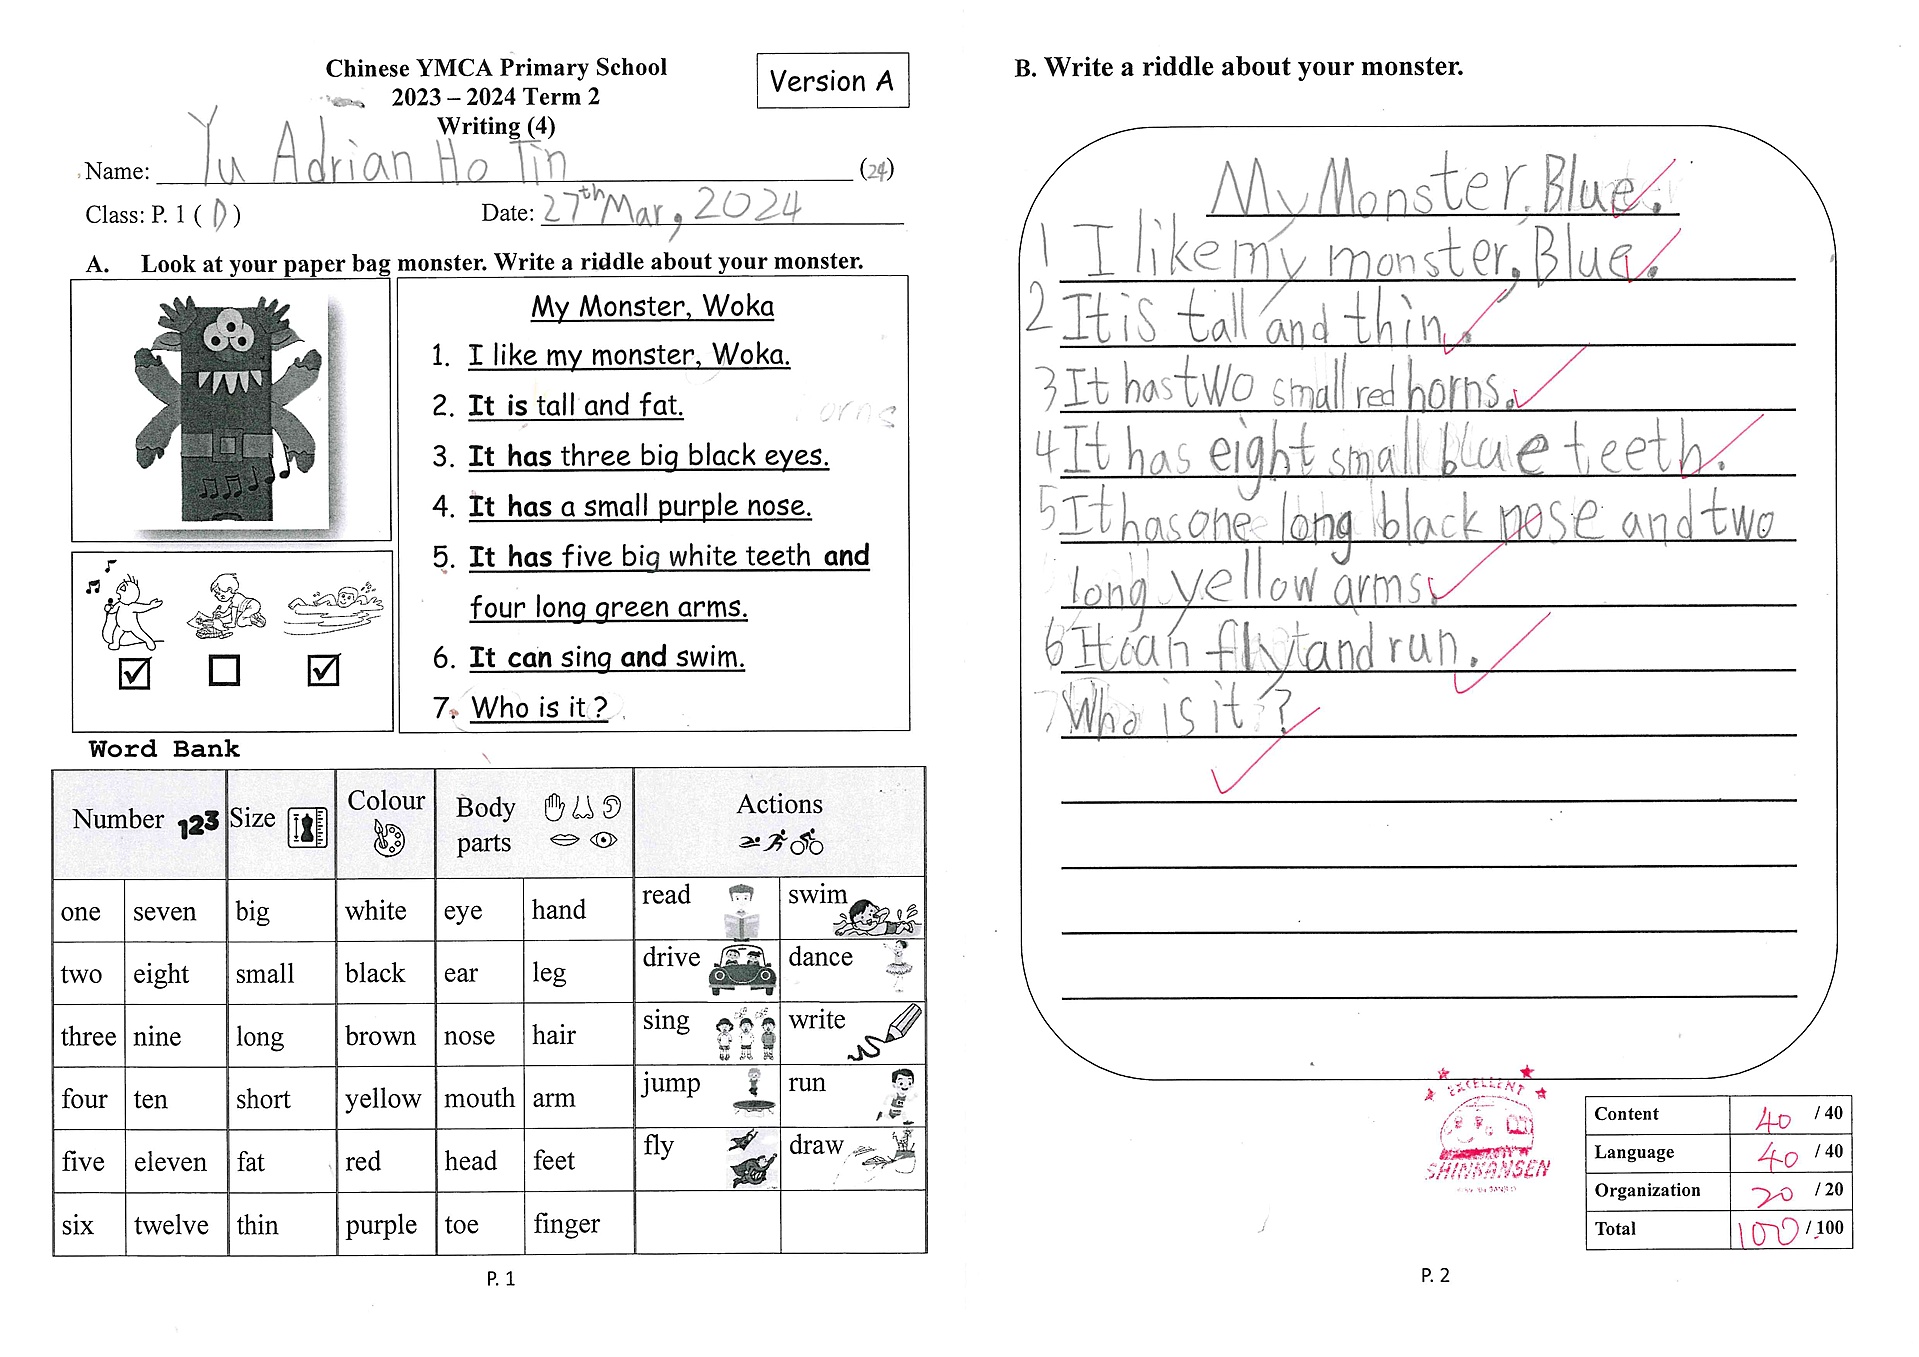 Chinese YMCA Primary School
2023 – 2024 Term 2
Writing (4)
Version A
Name: Yu Adrian Ho Tin (24)
Class: P. 1 ( D ) Date: 27th Mar, 2024
A. Look at your paper bag monster. Write a riddle about your monster.
My Monster, Woka
1. I like my monster, Woka.
2. It is tall and fat.
3. It has three big black eyes.
4. It has a small purple nose.
5. It has five big white teeth and
four long green arms.
6. It can sing and swim.
7. Who is it ?
Word Bank
Number 123 Size Colour Body parts Actions
one seven big white eye hand read swim
two eight small black ear leg drive dance
three nine long brown nose hair sing write
four ten short yellow mouth arm jump run
five eleven fat red head feet fly draw
six twelve thin purple toe finger
P. 1
B. Write a riddle about your monster.
My Monster, Blue.
1 I like my monster, Blue.
2 It is tall and thin.
3 It has two small red horns.
4 It has eight small blue teeth.
5 It has one long black nose and two
long yellow arms.
6 It can fly and run.
7 Who is it ?
EXCELLENT
SHINKANSEN
Content 40 / 40
Language 40 / 40
Organization 20 / 20
Total 100 / 100
P. 2